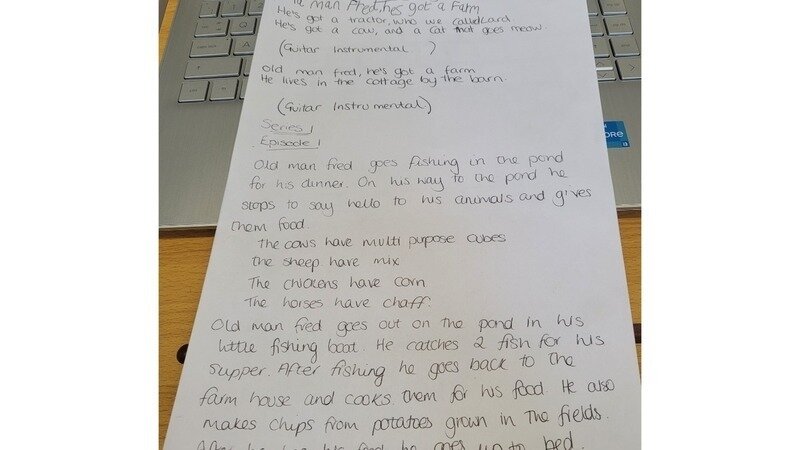 man Fred, he's got a farm
He's got a tractor, who we called
He's got a cow, and a cat that goes meow.
(Guitar Instrumental )
Old man fred, he's got a farm
He lives in the cottage by the barn.
(Guitar Instrumental)
Series 1
Episode 1
Old man fred goes fishing in the pond
for his dinner. On his way to the pond he
stops to say hello to his animals and gives
them food.
The cows have multi purpose cubes
The sheep have mix
The chickens have corn
The horses have chaff.
Old man fred goes out on the pond in his
little fishing boat. He catches 2 fish for his
supper. After fishing he goes back to the
farm house and cooks them for his food. He also
makes chips from potatoes grown in the fields.
After he has his food he goes up to bed.
ORE
i3